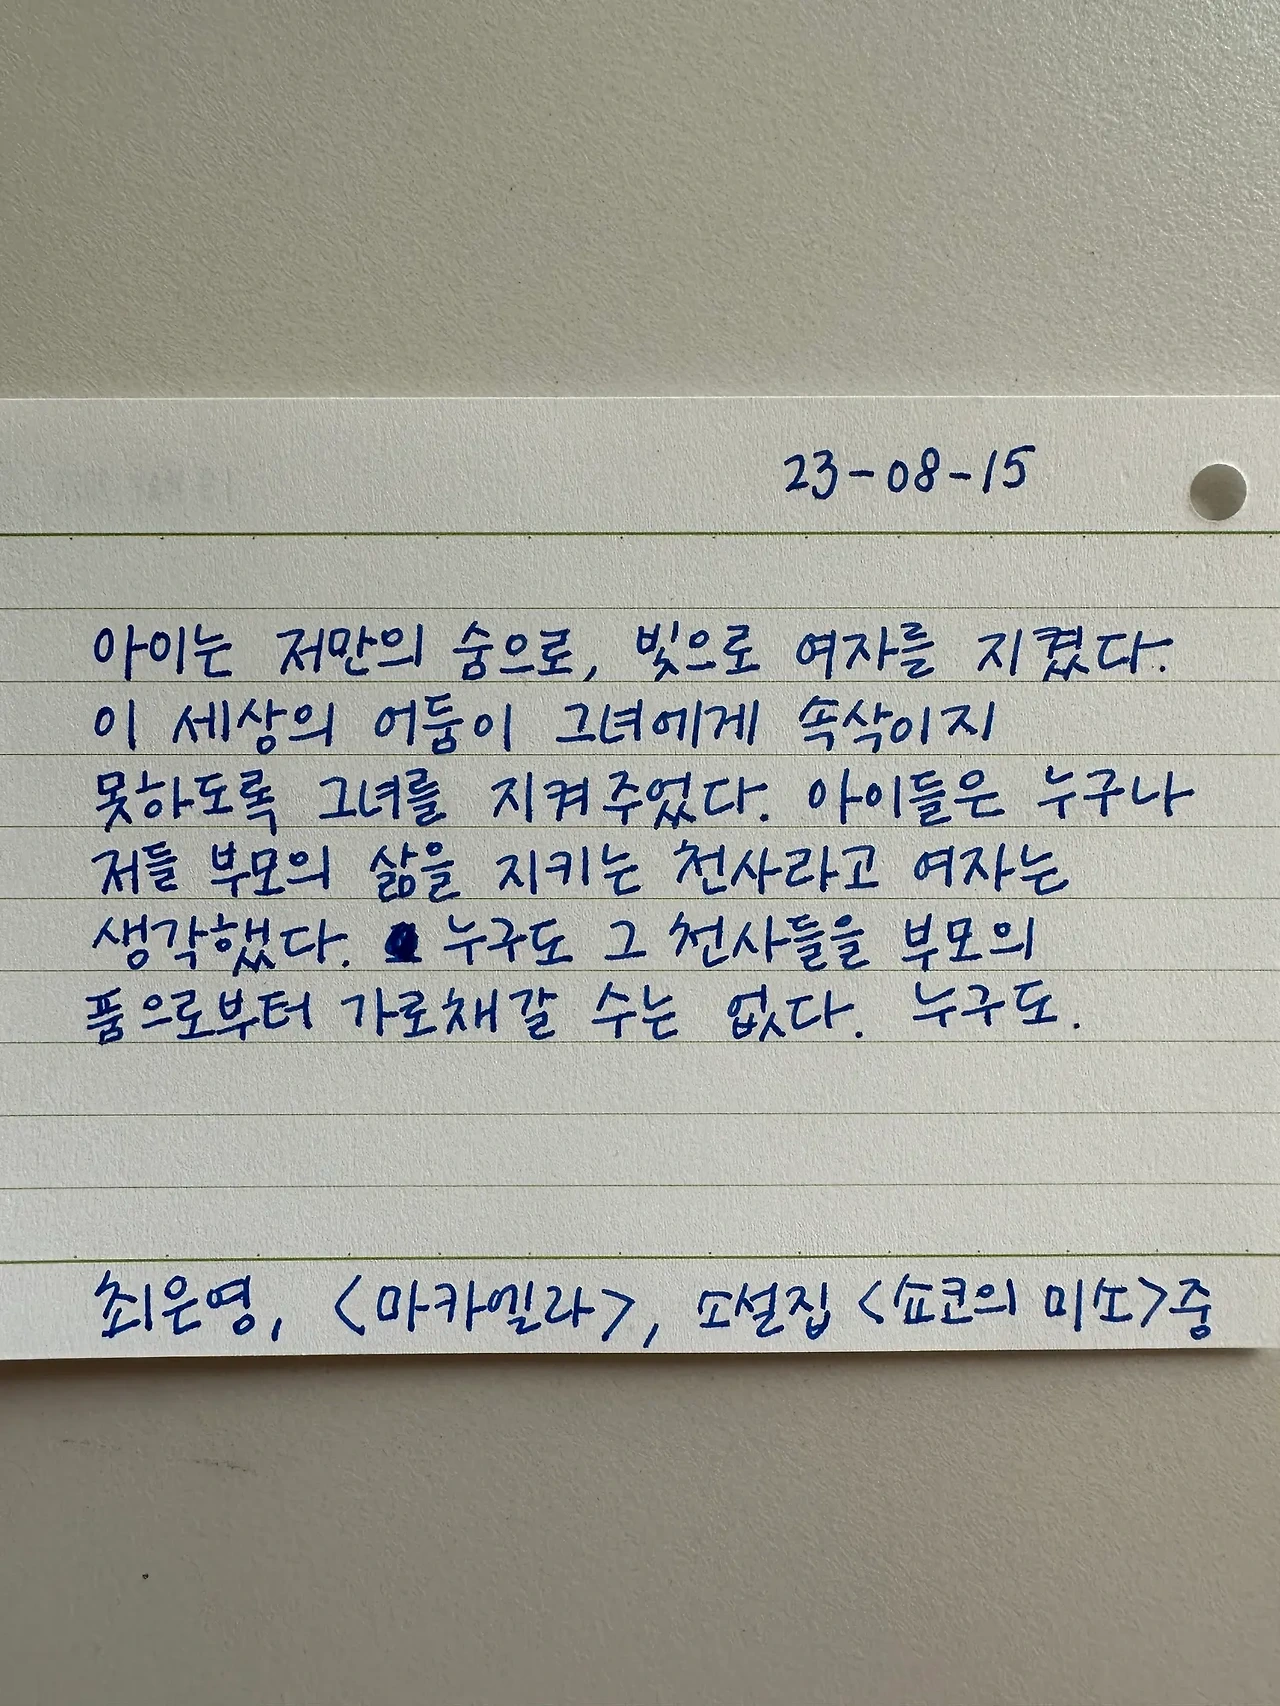 23-08-15
아이는 저만의 숨으로, 빛으로 여자를 지켰다.
이 세상의 어둠이 그녀에게 속삭이지
못하도록 그녀를 지켜주었다. 아이들은 누구나
저들 부모의 삶을 지키는 천사라고 여자는
생각했다. 누구도 그 천사들을 부모의
품으로부터 가로채갈 수는 없다. 누구도.
최은영, <마카엘라>, 소설집 <쇼코의 미소>중